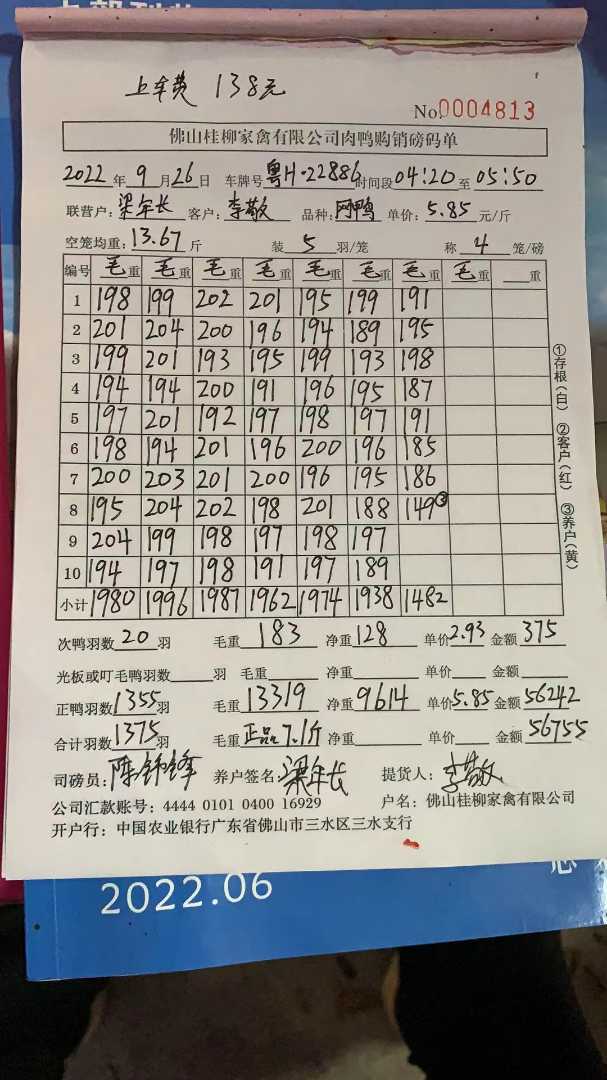 上车费 138元
No.0004813
佛山桂柳家禽有限公司肉鸭购销磅码单
2022年9月26日 车牌号粤H·22886时间段04:20至05:50
联营户:梁年长 客户:李敬 品种:网鸭 单价:5.85元/斤
空笼均重:13.67斤 装5羽/笼 称4笼/磅
编号 毛重 毛重 毛重 毛重 毛重 毛重 毛重 毛重 重
1 198 199 202 201 195 199 191
2 201 204 200 196 194 189 195
3 199 201 193 195 199 193 198
4 194 194 200 191 196 195 187
5 197 201 192 197 198 197 191
6 198 194 201 196 200 196 185
7 200 203 201 200 196 195 186
8 195 204 202 198 201 188 149③
9 204 199 198 197 198 197
10 194 197 198 191 197 189
小计 1980 1996 1987 1962 1974 1938 1482
次鸭羽数20羽 毛重183 净重128 单价2.93 金额375
光板或叮毛鸭羽数 羽 毛重 净重 单价 金额
正鸭羽数1355羽 毛重13319 净重9614 单价5.85 金额56242
合计羽数1375羽 毛重正品7.1斤 净重 单价 金额56755
司磅员:陈锦锋 养户签名:梁年长 提货人:李敬
公司汇款账号:4444 0101 0400 16929 户名:佛山桂柳家禽有限公司
开户行:中国农业银行广东省佛山市三水区三水支行
①存根(白) ②客户(红) ③养户(黄)
2022.06